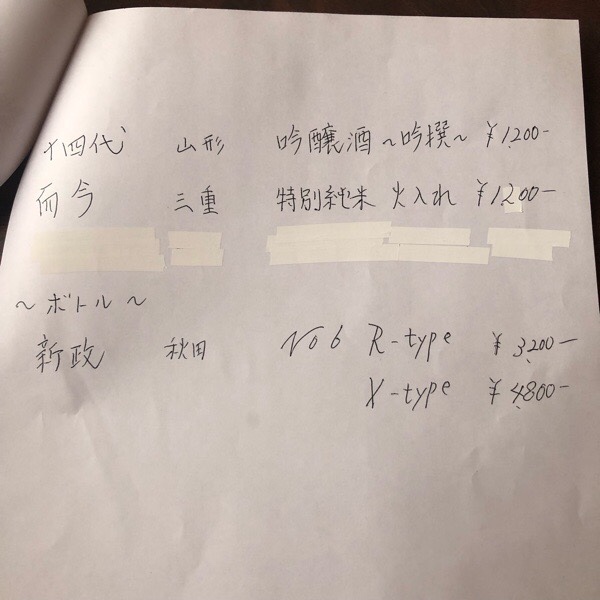 十四代 山形 吟醸酒 ~吟撰~ ¥1,200-
而今 三重 特別純米 火入れ ¥1,200-
~ボトル~
新政 秋田 No 6 R-type ¥3,200-
X-type ¥4,800-